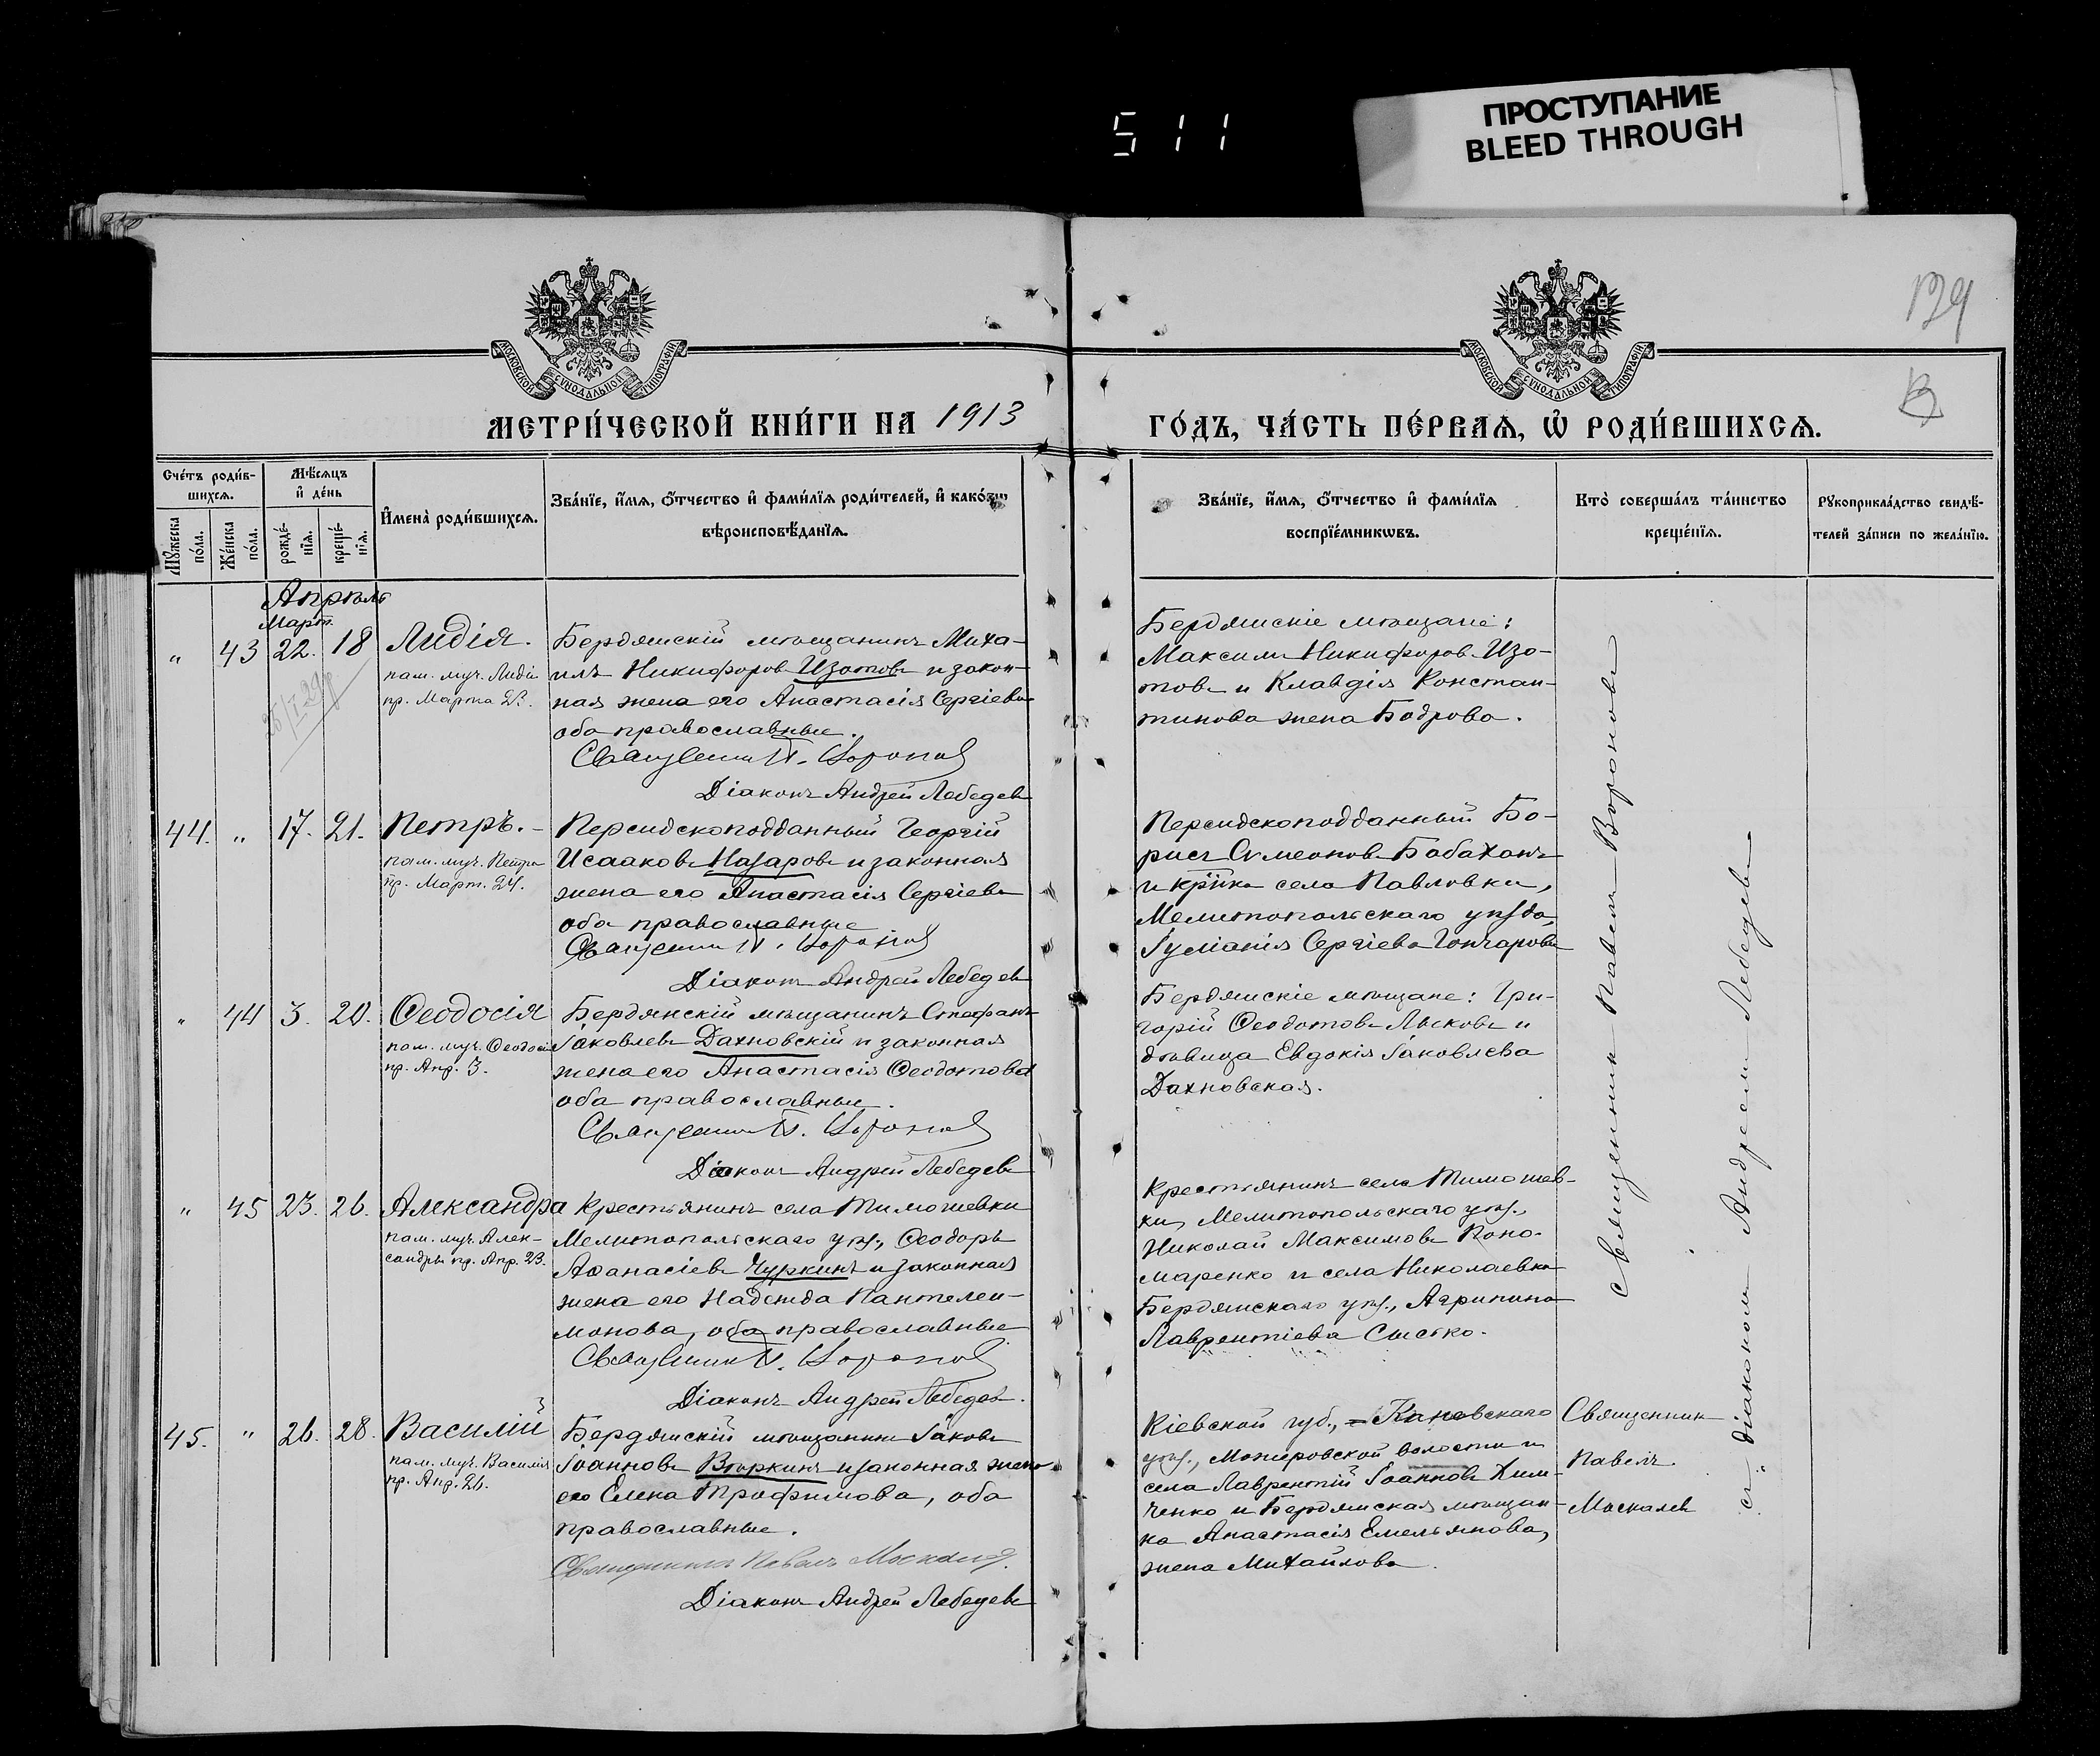 511
ПРОСТУПАНИЕ
BLEED THROUGH
МОСКОВСКОЙ СѴНОДАЛЬНОЙ ТИПОГРАФІИ
МОСКОВСКОЙ СѴНОДАЛЬНОЙ ТИПОГРАФІИ
МЕТРИ́ЧЕСКОЙ КНИ́ГИ НА 1913
ГО́ДЪ, ЧА́СТЬ ПЕ́РВАѦ, Ѡ҆ РОДИ́ВШИХСѦ.
Сче́тъ роди́в-
шихсѧ.
Мꙋ́жеска
по́ла.
Же́нска
по́ла.
Мѣ́сѧцъ
и҆ де́нь
рожде́-
нїѧ.
креще́-
нїѧ.
И҆мена̀ роди́вшихсѧ.
Зва́нїе, и҆́мѧ, ѻ҆́тчество и҆ фами́лїѧ роди́телей, и҆ како́гѡ
вѣроисповѣ́данїѧ.
Зва́нїе, и҆́мѧ, ѻ҆́тчество и҆ фами́лїѧ
воспрїе́мникѡвъ.
Кто̀ соверша́лъ та́инство
креще́нїѧ.
Рꙋкоприкла́дство свидѣ́-
телей за́писи по жела́нїю.
Апрѣль
Март.
" 43 22. 18 Лидія.
пам. муч. Лидіи
пр. Марта 23.
Бердянскій мѣщанинъ Миха-
илъ Никифоровъ Изотовъ и закон-
ная жена его Анастасія Сергіева
оба православные.
Священникъ П. Вороновъ
Діаконъ Андрей Лебедевъ
Бердянскіе мѣщане:
Максимъ Никифоровъ Изо-
товъ и Клавдія Констан-
тинова жена Бодрова.
44. " 17. 21. Петръ.
пам. муч. Петра
пр. Март. 24.
Персидскоподданный Георгій
Исааковъ Назаровъ и законная
жена его Анастасія Сергіева
оба православные
Священникъ П. Вороновъ
Діаконъ Андрей Лебедевъ
Персидскоподданный Бо-
рисъ Симеоновъ Бабахонъ
и кр-нка села Павловки,
Мелитопольскаго уѣзда,
Сергіева Гончарова
" 44 3. 20. Ѳеодосія
пам. муч. Ѳеодосіи
пр. Апр. 3.
Бердянскій мѣщанинъ Стефанъ
Іаковлевъ Дахновскій и законная
жена его Анастасія Ѳеодотова
оба православные.
Священникъ П. Вороновъ
Діаконъ Андрей Лебедевъ
Бердянскіе мѣщане: Гри-
горій Ѳеодотовъ Лысковъ и
дѣвица Евдокія Іаковлева
Дахновская.
" 45 23. 26. Александра
пам. муч. Алек-
сандры пр. Апр. 23.
Крестьянинъ села Тимошевки
Мелитопольскаго уѣз., Ѳеодоръ
Аѳанасіевъ Чуркинъ и законная
жена его Надежда Пантелеи-
монова, оба православные
Священникъ П. Вороновъ
Діаконъ Андрей Лебедевъ.
Крестьянинъ села Тимошев-
ки, Мелитопольскаго уѣз.,
Николай Максимовъ Поно-
маренко и села Николаевки
Бердянскаго уѣз., Агрипина
Лаврентіева
45. " 26. 28. Василій
пам. муч. Василія
пр. Апр. 26.
Бердянскій мѣщанинъ Іаковъ
Іоанновъ Втюркинъ и законная жена
его Елена Трофимова, оба
православные.
Священникъ Павелъ Москалев
Діаконъ Андрей Лебедевъ
Кіевской губ., Каневскаго
уѣз., волости и
села Лаврентій Іоанновъ Хим-
ченко и Бердянская мѣщан-
ка Анастасія Емельянова,
жена Михайлова.
Священникъ
Павелъ
Москалев
Священникъ Павелъ Вороновъ
съ діакономъ Андреемъ Лебедевымъ